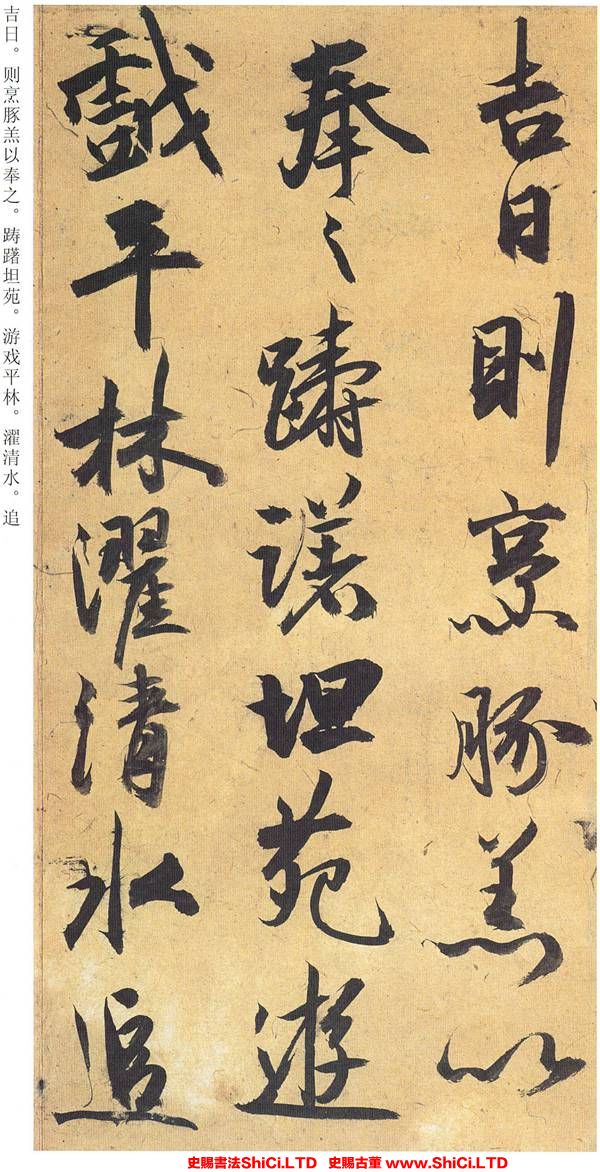 吉日則烹豚羔以
奉之躊躇坦苑遊
戲平林濯清水追
吉日。则烹豚羔以奉之。踌躇坦苑。游戏平林。濯清水。追
史賜書法ShiCi.LTD 史賜古董 www.ShiCi.LTD